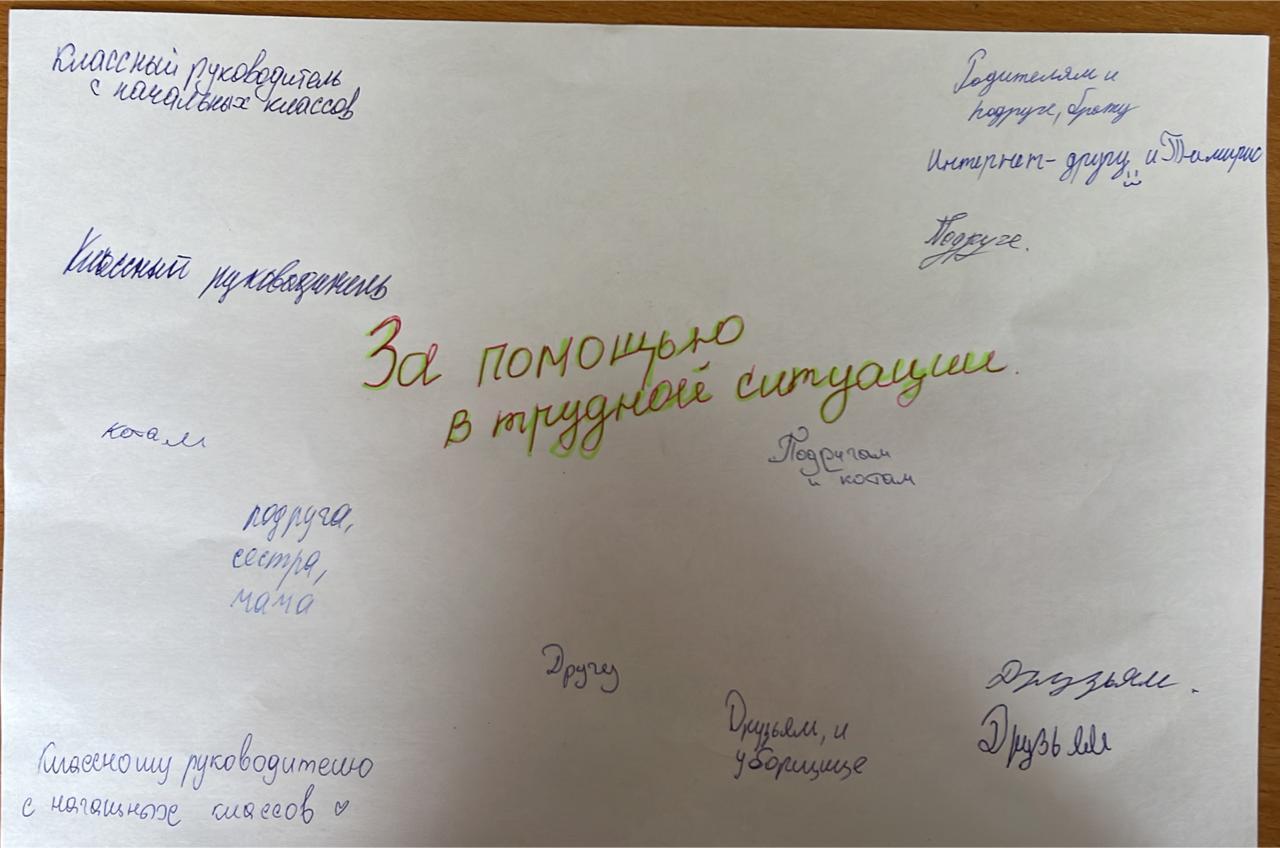 Классный руководитель
с начальных классов
Родителям и
подруге, брату
Интернет-другу и Тамирис
Подруге.
Классный руководитель
За помощью
в трудной ситуации.
котам
Подругам
и котам
подруга,
сестра,
мама
Другу
Друзьям.
Друзьям, и
уборщице
Друзьям
Классному руководителю
с начальных классов ♡